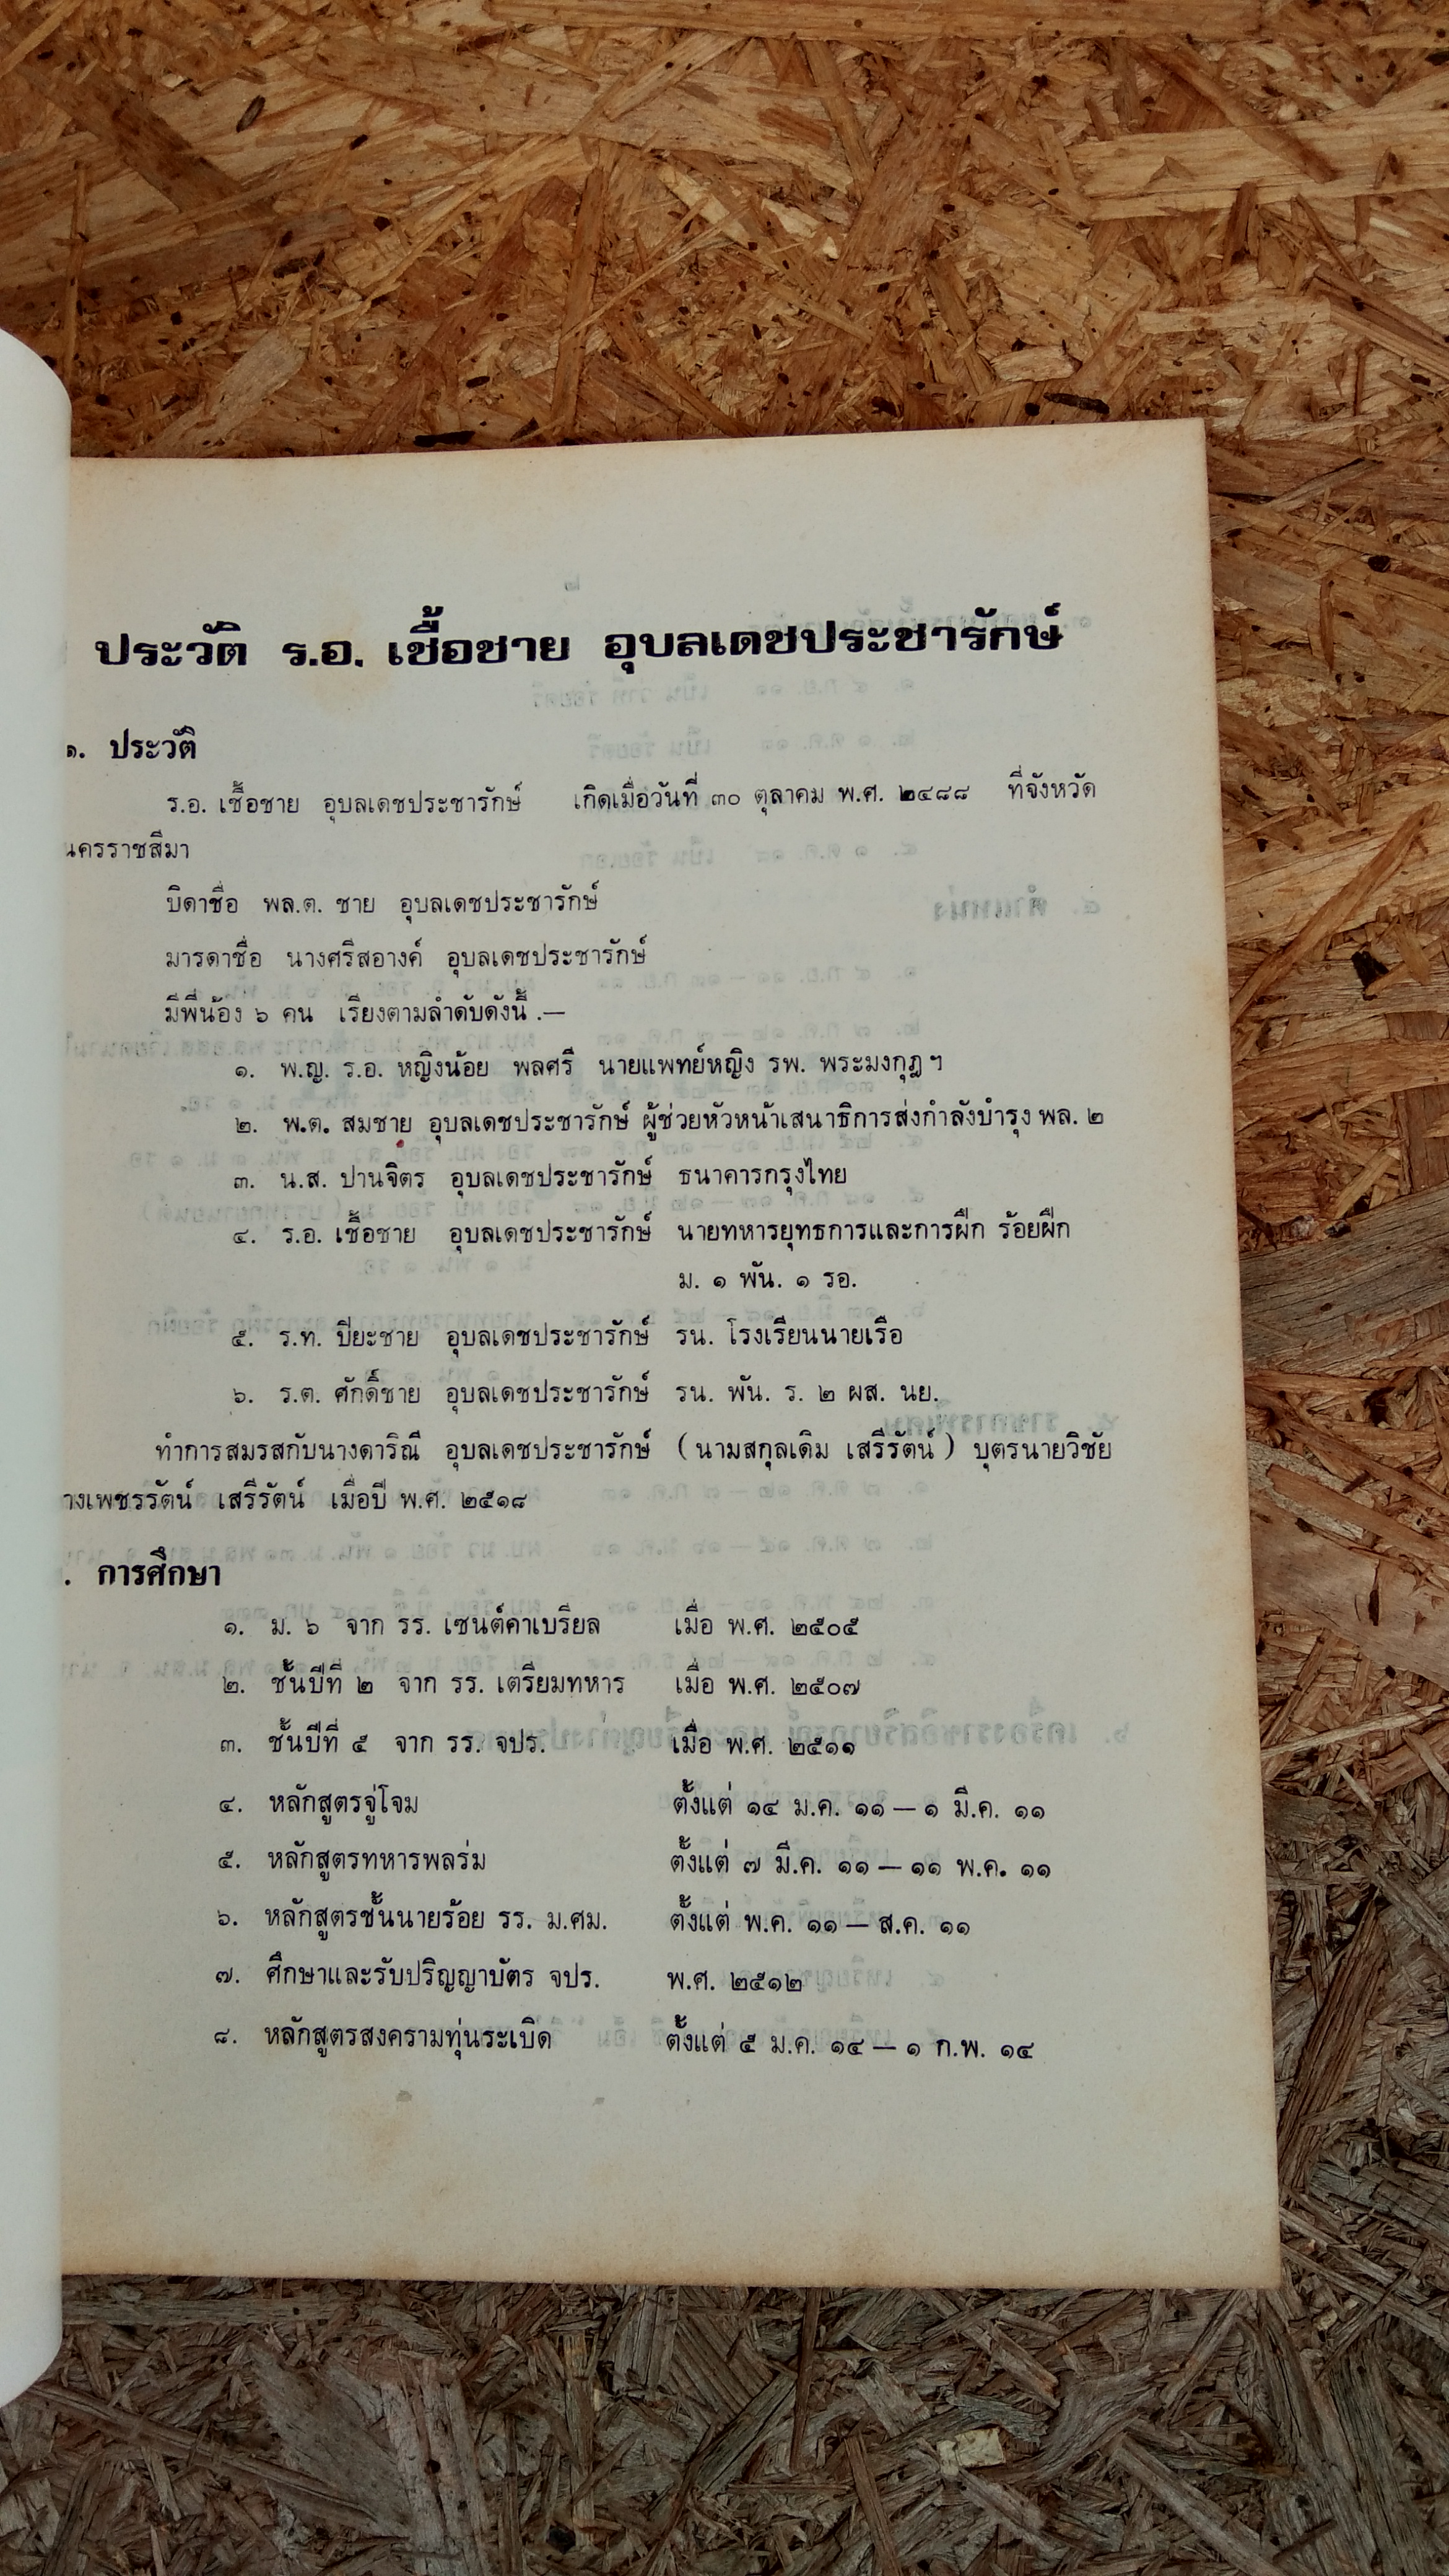 ประวัติ ร.อ. เชื้อชาย อุบลเดชประชารักษ์
๑. ประวัติ
ร.อ. เชื้อชาย อุบลเดชประชารักษ์ เกิดเมื่อวันที่ ๓๐ ตุลาคม พ.ศ. ๒๔๘๘ ที่จังหวัด
นครราชสีมา
บิดาชื่อ พล.ต. ชาย อุบลเดชประชารักษ์
มารดาชื่อ นางศรีสอางค์ อุบลเดชประชารักษ์
มีพี่น้อง ๖ คน เรียงตามลำดับดังนี้ .—
๑. พ.ญ. ร.อ. หญิงน้อย พลศรี นายแพทย์หญิง รพ. พระมงกุฎฯ
๒. พ.ต. สมชาย อุบลเดชประชารักษ์ ผู้ช่วยหัวหน้าเสนาธิการส่งกำลังบำรุง พล. ๒
๓. น.ส. ปานจิตร อุบลเดชประชารักษ์ ธนาคารกรุงไทย
๔. ร.อ. เชื้อชาย อุบลเดชประชารักษ์ นายทหารยุทธการและการฝึก ร้อยฝึก
ม. ๑ พัน. ๑ รอ.
๕. ร.ท. ปิยะชาย อุบลเดชประชารักษ์ รน. โรงเรียนนายเรือ
๖. ร.ต. ศักดิ์ชาย อุบลเดชประชารักษ์ รน. พัน. ร. ๒ ผส. นย.
ทำการสมรสกับนางดาริณี อุบลเดชประชารักษ์ ( นามสกุลเดิม เสรีรัตน์ ) บุตรนายวิชัย
างเพชรรัตน์ เสรีรัตน์ เมื่อปี พ.ศ. ๒๕๑๘
. การศึกษา
๑. ม. ๖ จาก รร. เซนต์คาเบรียล เมื่อ พ.ศ. ๒๕๐๕
๒. ชั้นปีที่ ๒ จาก รร. เตรียมทหาร เมื่อ พ.ศ. ๒๕๐๗
๓. ชั้นปีที่ ๕ จาก รร. จปร. เมื่อ พ.ศ. ๒๕๑๑
๔. หลักสูตรจู่โจม ตั้งแต่ ๑๔ ม.ค. ๑๑ — ๑ มี.ค. ๑๑
๕. หลักสูตรทหารพลร่ม ตั้งแต่ ๗ มี.ค. ๑๑ — ๑๑ พ.ค. ๑๑
๖. หลักสูตรชั้นนายร้อย รร. ม.ศม. ตั้งแต่ พ.ค. ๑๑ — ส.ค. ๑๑
๗. ศึกษาและรับปริญญาบัตร จปร. พ.ศ. ๒๕๑๒
๘. หลักสูตรสงครามทุ่นระเบิด ตั้งแต่ ๕ ม.ค. ๑๔ — ๑ ก.พ. ๑๔